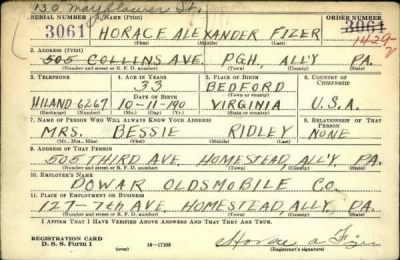 130 Mayflower St.
SERIAL NUMBER 1. NAME (Print) ORDER NUMBER
3061 HORACE ALEXANDER FIZER 3061
(First) (Middle) (Last) 1429
2. ADDRESS (Print)
505 COLLINS AVE. PGH, ALL'Y PA.
(Number and street or R. F. D. number) (Town) (County) (State)
3. TELEPHONE 4. AGE IN YEARS 5. PLACE OF BIRTH 6. COUNTRY OF CITIZENSHIP
33 BEDFORD
DATE OF BIRTH (Town or county)
HILAND 6267 10-11-190 VIRGINIA U.S.A.
(Exchange) (Number) (Mo.) (Day) (Yr.) (State or country)
7. NAME OF PERSON WHO WILL ALWAYS KNOW YOUR ADDRESS 8. RELATIONSHIP OF THAT PERSON
MRS. BESSIE RIDLEY NONE
(Mr., Mrs., Miss) (First) (Middle) (Last)
9. ADDRESS OF THAT PERSON
505 THIRD AVE, HOMESTEAD, ALL'Y, PA.
(Number and street or R. F. D. number) (Town) (County) (State)
10. EMPLOYER'S NAME
DOWAR OLDSMOBILE CO.
11. PLACE OF EMPLOYMENT OR BUSINESS
127-7th AVE HOMESTEAD, ALL'Y, PA.
(Number and street or R. F. D. number) (Town) (County) (State)
I AFFIRM THAT I HAVE VERIFIED ABOVE ANSWERS AND THAT THEY ARE TRUE.
REGISTRATION CARD
D. S. S. Form 1 (over) 16-17105 Horace A Fizer
(Registrant's signature)